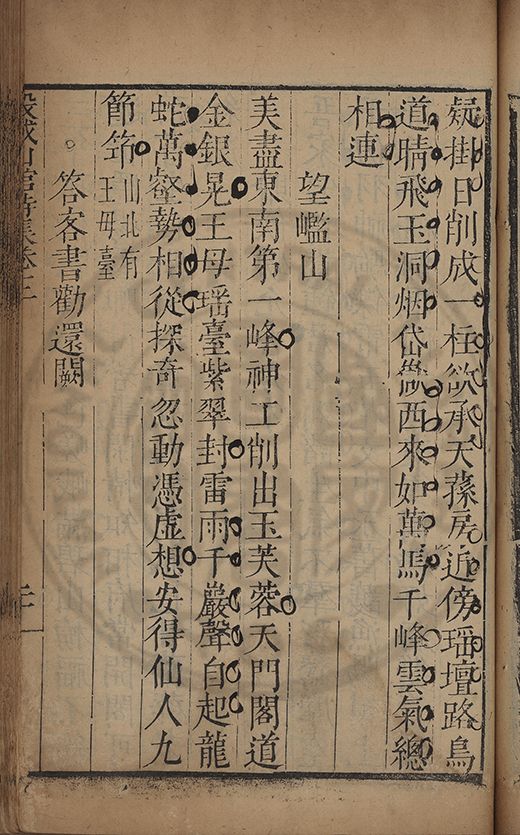 疑掛日削成一柱欲承天蓀房近傍瑶壇路鳥
道晴飛玉洞烟岱嶽西來如萬馬千峰雲氣總
相連
望山
美盡東南第一峰神工削出玉芙蓉天門閣道
金銀晃王母瑶臺紫翠封雷雨千巖聲自起龍
蛇萬壑勢相從探奇忽動憑虛想安得仙人九
節筇山北有
王母臺
答客書勸還闕
穀城山館詩集卷